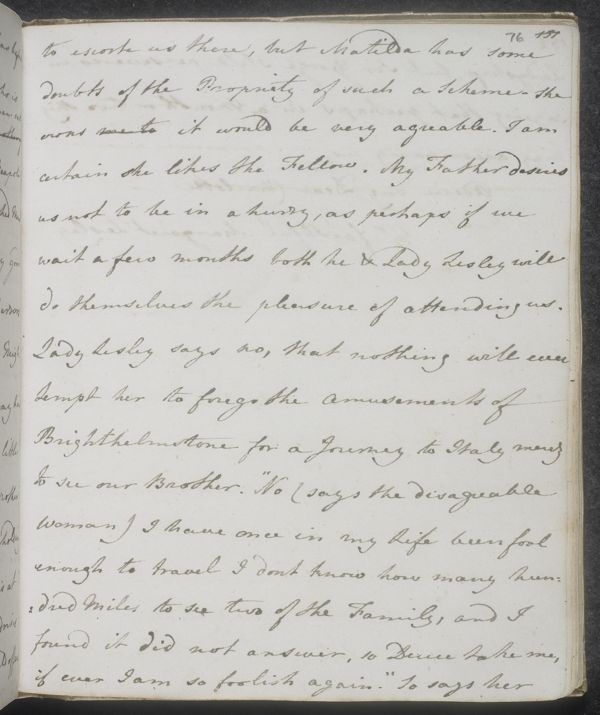 76 151
to escorte us there, but Matilda has some
doubts of the Propriety of such a Scheme - she
owns it would be very agreable. I am
certain she likes the Fellow. My Father desires
us not to be in a hurry, as perhaps if we
wait a few months both he & Lady Lesley will
do themselves the pleasure of attending us.
Lady Lesley says no, that nothing will ever
tempt her to forego the amusements of
Brighthelmstone for a Journey to Italy merely
to see our Brother. "No (says the disagreable
Woman) I have once in my Life been fool
enough to travel I dont know how many hun=
=dred Miles to see two of the Family, and I
found it did not answer, so Deuce take me,
if ever I am so foolish again." So says her